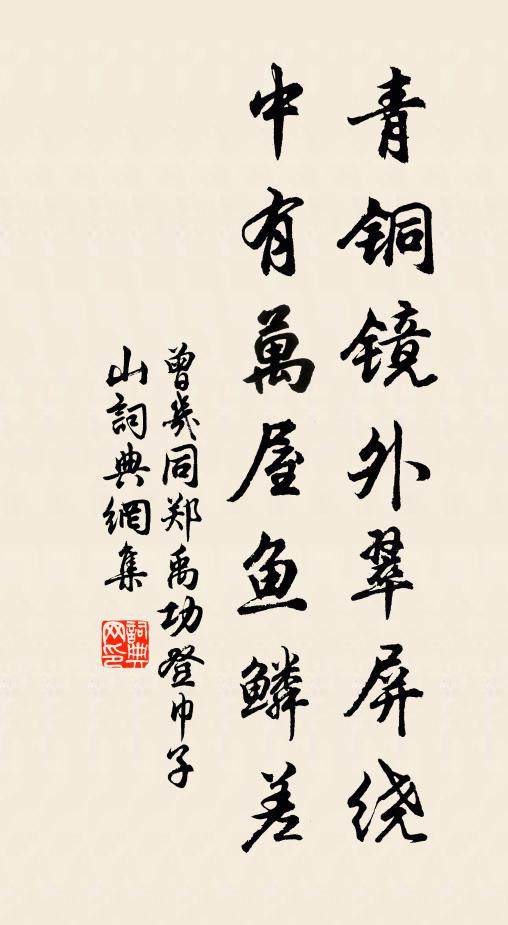 青铜镜外翠屏绕
中有萬屋鱼鳞差
曾幾同郑禹功登巾子
山詞典網集
詞典
网印